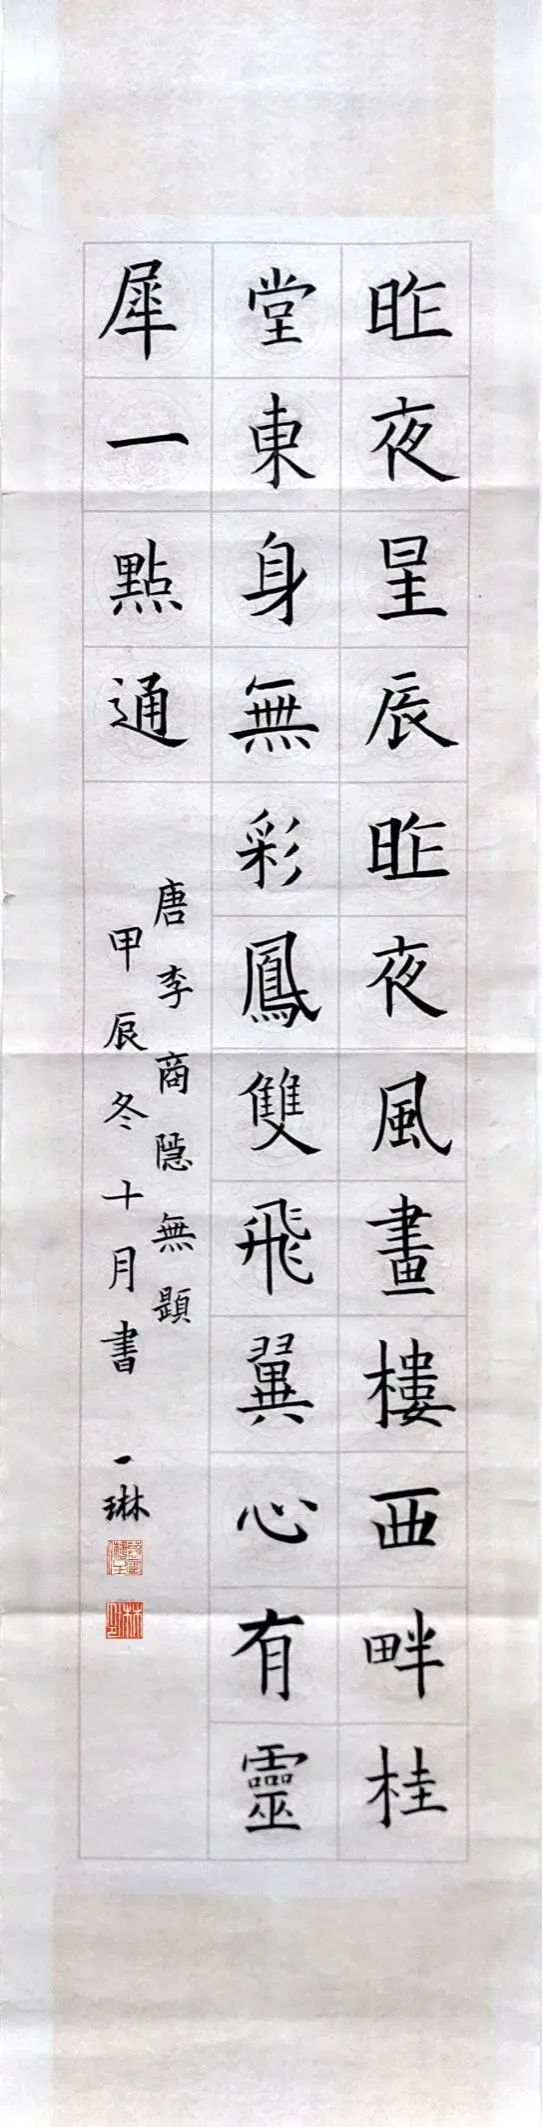 昨夜星辰昨夜風畫樓西畔桂
堂東身無彩鳳雙飛翼心有靈
犀一點通
唐李商隱無題
甲辰冬十月書 一琳